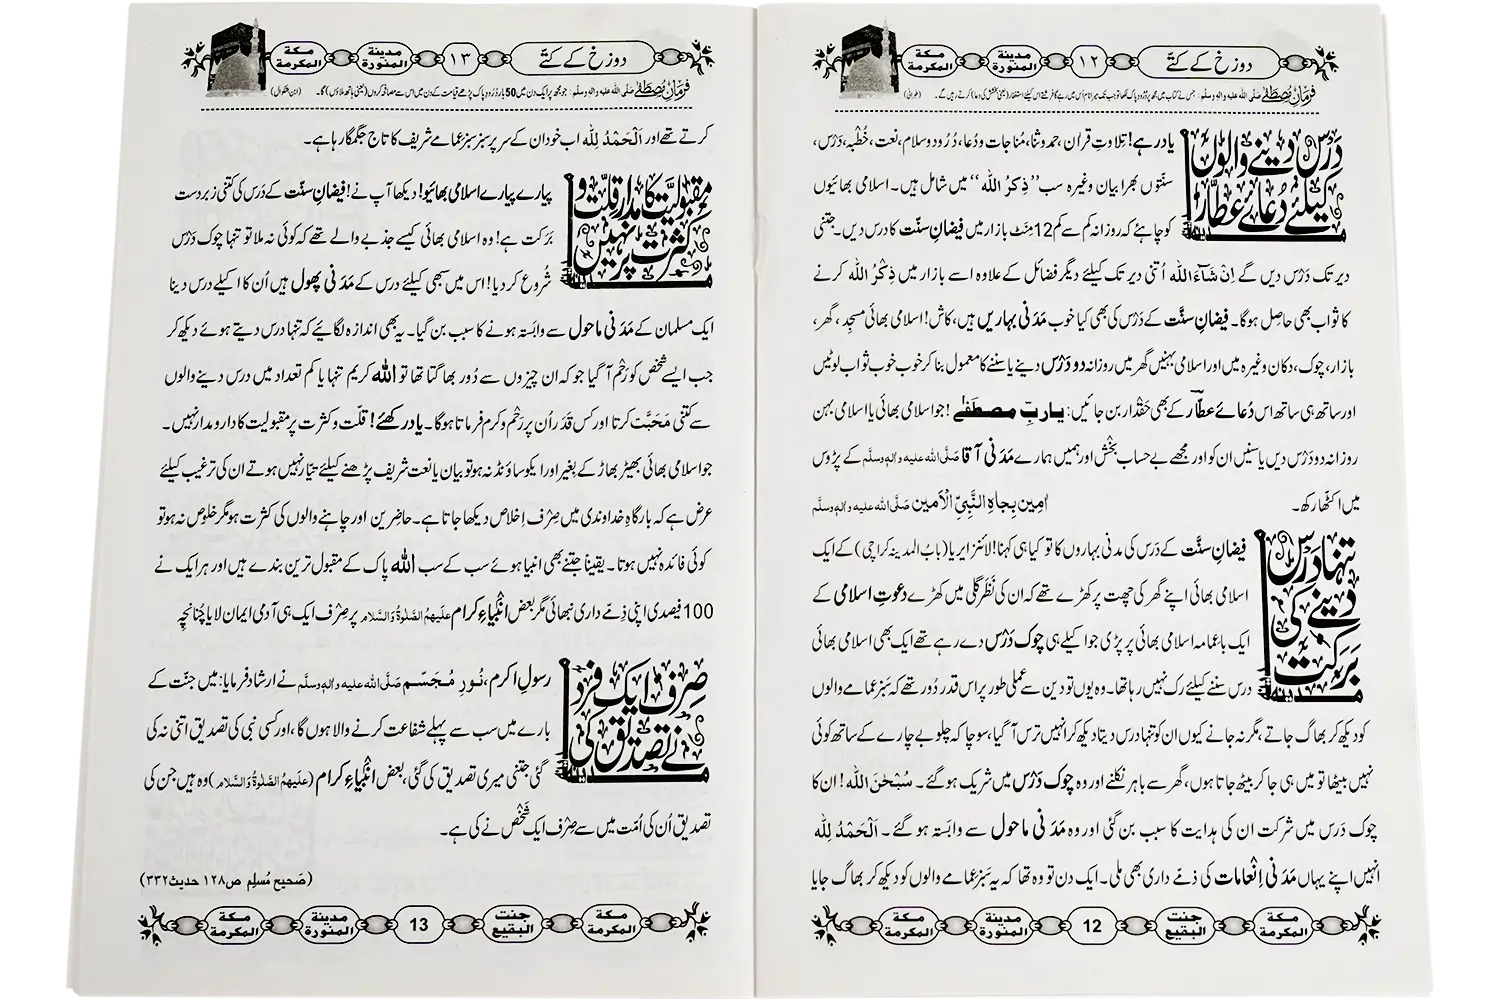 دوزخ کے کتّے
۱۲
مدینة المنورة
مکة المکرمة
فرمانِ مصطفےٰ صلَّی اللہ علیہ والہٖ وسلَّم: جس نے کتاب میں مجھ پر دُرُودِ پاک لکھا تو جب تک میرا نام اُس میں رہے گا فرشتے اس کیلئے استغفار (یعنی بخشش کی دعا) کرتے رہیں گے۔ (طبرانی)
دَرْس دینے والوں کیلئے دُعائے عطّار
یاد رہے! تِلاوتِ قراٰن، حمد و ثنا، مُناجات و دُعا، دُرُود و سلام، نعت، خُطْبہ، دَرْس،
سنّتوں بھرا بیان وغیرہ سب ’’ذِکرُ اللہ‘‘ میں شامل ہیں۔ اسلامی بھائیوں
کو چاہئے کہ روزانہ کم سے کم 12 مِنَٹ بازار میں فیضانِ سنّت کا درس دیں۔ جتنی
دیر تک دَرْس دیں گے اِنْ شَآءَاللہ اُتنی دیر تک کیلئے دیگر فضائل کے علاوہ اسے بازار میں ذِکْرُ اللہ کرنے
کا ثواب بھی حاصِل ہوگا۔ فیضانِ سنّت کے دَرْس کی بھی کیا خوب مَدَنی بہاریں ہیں، کاش! اسلامی بھائی مسجِد، گھر،
بازار، چوک، دکان وغیرہ میں اور اسلامی بہنیں گھر میں روزانہ دو دَرْس دینے یا سننے کا معمول بنا کر خوب خوب ثواب لوٹیں
اور ساتھ ہی ساتھ اس دُعائے عطّار کے بھی حَقْدار بن جائیں: یاربِّ مصطَفٰے! جو اسلامی بھائی یا اسلامی بہن
روزانہ دو دَرْس دیں یا سنیں ان کو اور مجھے بے حساب بَخْش اور ہمیں ہمارے مَدَنی آقا صَلَّی اللہ علیہ والہٖ وسلَّم کے پڑوس
میں اکٹھا رکھ۔ اٰمِین بِجاہِ النَّبِیِّ الْاَمین صَلَّی اللہ علیہ والہٖ وسلَّم
تنہا دَرْس دینے کی بَرَکت
فیضانِ سنَّت کے دَرْس کی مدنی بہاروں کا تو کیا ہی کہنا! لائنز ایریا (بابُ المدینہ کراچی) کے ایک
اسلامی بھائی اپنے گھر کی چھت پر کھڑے تھے کہ ان کی نَظَر گلی میں کھڑے دعوتِ اسلامی کے
ایک باعمامہ اسلامی بھائی پر پڑی جو اکیلے ہی چوک دَرْس دے رہے تھے ایک بھی اسلامی بھائی
درس سننے کیلئے رک نہیں رہا تھا۔ وہ یوں تو دین سے عملی طور پر اس قدر دُور تھے کہ سَبْز عمامے والوں
کو دیکھ کر بھاگ جاتے، مگر نہ جانے کیوں ان کو تنہا درس دیتا دیکھ کر انہیں ترس آگیا، سوچا کہ چلو بے چارے کے ساتھ کوئی
نہیں بیٹھا تو میں ہی جا کر بیٹھ جاتا ہوں، گھر سے باہر نکلے اور وہ چوک دَرْس میں شریک ہوگئے۔ سُبْحٰنَ اللہ! ان کا
چوک دَرس میں شرکت ان کی ہدایت کا سبب بن گئی اور وہ مَدَنی ماحول سے وابَستہ ہو گئے۔ اَلْحَمْدُ لِلّٰہ
انہیں اپنے یہاں مَدَنی اِنْعامات کی ذمّے داری بھی ملی۔ ایک دن تو وہ تھا کہ یہ سَبْز عمامے والوں کو دیکھ کر بھاگ جایا
مکة المکرمة
جنت البقیع
12
مدینة المنورة
مکة المکرمة
دوزخ کے کتّے
۱۳
مدینة المنورة
مکة المکرمة
فرمانِ مصطفےٰ صلَّی اللہ علیہ والہٖ وسلَّم: جو مجھ پر ایک دن میں 50 بار دُرُودِ پاک پڑھے قیامت کے دن میں اس سے مصافحہ کروں (یعنی ہاتھ ملاؤں) گا۔ (ابن بشکوال)
کرتے تھے اور اَلْحَمْدُ لِلّٰہ اب خود ان کے سر پر سبز سبز عمامے شریف کا تاج جگمگا رہا ہے۔
مقبولیّت کا مدار قلّت و کثرت پر نہیں
پیارے پیارے اسلامی بھائیو! دیکھا آپ نے! فیضانِ سنّت کے دَرْس کی کتنی زبردست
بَرَکت ہے! وہ اسلامی بھائی کیسے جذبے والے تھے کہ کوئی نہ ملا تو تنہا چوک دَرْس
شُروع کردیا! اس میں سبھی کیلئے درس کے مَدَنی پھول ہیں اُن کا اکیلے درس دینا
ایک مسلمان کے مَدَنی ماحول سے وابَستہ ہونے کا سبب بن گیا۔ یہ بھی اندازہ لگائیے کہ تنہا درس دیتے ہوئے دیکھ کر
جب ایسے شخص کو رَحْم آگیا جو کہ ان چیزوں سے دُور بھاگتا تھا تو اللہ کریم تنہا یا کم تعداد میں درس دینے والوں
سے کتنی مَحَبَّت کرتا اور کس قَدَر اُن پر رَحْم و کرم فرماتا ہوگا۔ یاد رکھئے! قلّت و کثرت پر مقبولیت کا دارومدار نہیں۔
جو اسلامی بھائی بھیڑ بھاڑ کے بغیر اور ایکو ساؤنڈ نہ ہو تو بیان یا نعت شریف پڑھنے کیلئے تیّار نہیں ہوتے ان کی ترغیب کیلئے
عرض ہے کہ بارگاہِ خداوندی میں صِرْف اِخلاص دیکھا جاتا ہے۔ حاضِرین اور چاہنے والوں کی کثرت ہو مگر خلوص نہ ہو تو
کوئی فائدہ نہیں ہوتا۔ یقیناً جتنے بھی انبیا ہوئے سب کے سب اللہ پاک کے مقبول ترین بندے ہیں اور ہر ایک نے
100 فیصدی اپنی ذمّے داری نبھائی مگر بعض اَنْبِیاءِ کرام علَیہِمُ الصَّلٰوۃُ وَالسَّلام پر صِرْف ایک ہی آدمی ایمان لایا چُنانچِہ
صِرْف ایک فرد نے تصدیق کی
رسولِ اکرم، نُورِ مُجَسَّم صَلَّی اللہ علیہ والہٖ وسلَّم نے ارشاد فرمایا: میں جنّت کے
بارے میں سب سے پہلے شفاعت کرنے والا ہوں گا، اور کسی نبی کی تصدیق اتنی نہ کی
گئی جتنی میری تصدیق کی گئی، بعض اَنْبِیاءِ کرام (علَیہِمُ الصَّلٰوۃُ وَالسَّلام) وہ ہیں جن کی
تصدیق اُن کی اُمّت میں سے صِرْف ایک شَخْص نے کی ہے۔
(صَحیح مُسلِم ص۱۲۸ حدیث۳۳۲)
مکة المکرمة
جنت البقیع
13
مدینة المنورة
مکة المکرمة